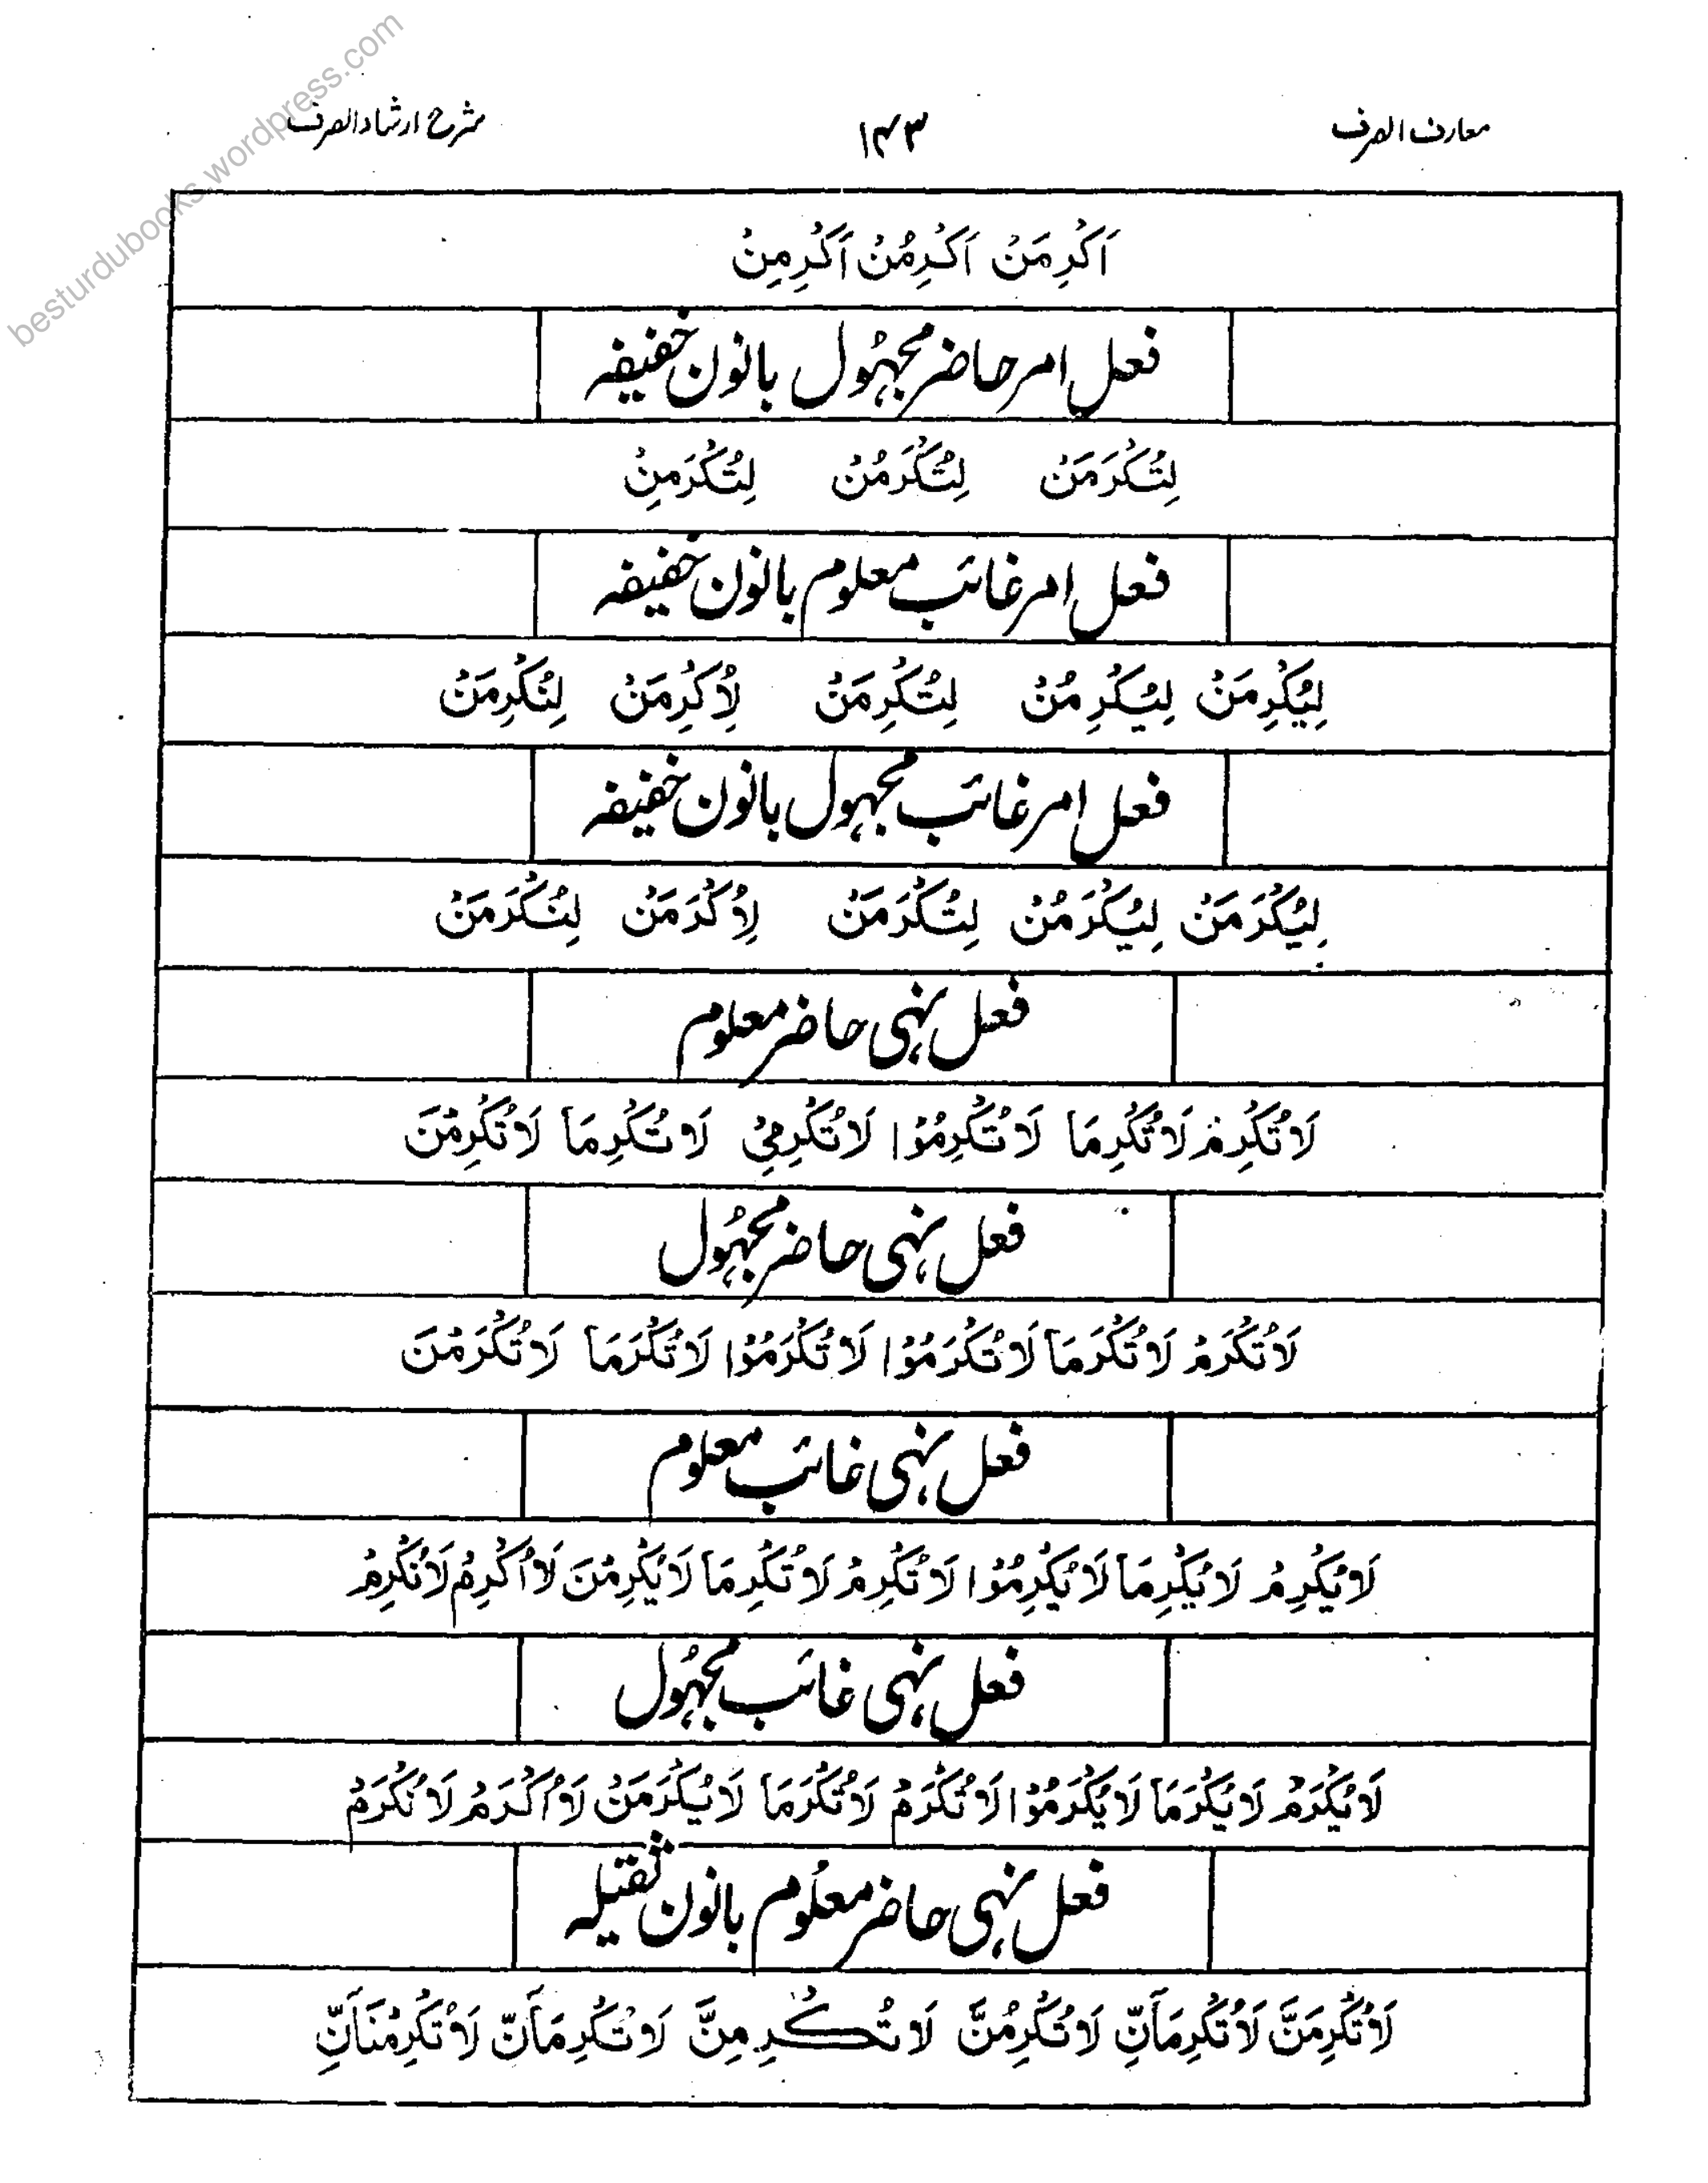 معارف الصرف ۱۴۳ شرح ارشاد الصرف
besturdubooks.wordpress.com
اَکْرِمَنْ اَکْرِمُنْ اَکْرِمِنْ
فعل امر حاضر مجہُول بانون خفیفہ
لِتُکْرَمَنْ لِتُکْرَمُنْ لِتُکْرَمِنْ
فعل امر غائب معلوم بانون خفیفہ
لِیُکْرِمَنْ لِیُکْرِمُنْ لِتُکْرِمَنْ لِاُکْرِمَنْ لِنُکْرِمَنْ
فعل امر غائب مجہول بانون خفیفہ
لِیُکْرَمَنْ لِیُکْرَمُنْ لِتُکْرَمَنْ لِاُکْرَمَنْ لِنُکْرَمَنْ
فعل نہی حاضر معلوم
لَاتُکْرِمْ لَاتُکْرِمَا لَاتُکْرِمُوْا لَاتُکْرِمِیْ لَاتُکْرِمَا لَاتُکْرِمْنَ
فعل نہی حاضر مجہُول
لَاتُکْرَمْ لَاتُکْرَمَا لَاتُکْرَمُوْا لَاتُکْرَمُوْا لَاتُکْرَمَا لَاتُکْرَمْنَ
فعل نہی غائب معلوم
لَایُکْرِمْ لَایُکْرِمَا لَایُکْرِمُوْا لَاتُکْرِمْ لَاتُکْرِمَا لَایُکْرِمْنَ لَااُکْرِمْ لَانُکْرِمْ
فعل نہی غائب مجہُول
لَایُکْرَمْ لَایُکْرَمَا لَایُکْرَمُوْا لَاتُکْرَمْ لَاتُکْرَمَا لَایُکْرَمَنْ لَااُکْرَمْ لَانُکْرَمْ
فعل نہی حاضر معلُوم بانون ثقیلہ
لَاتُکْرِمَنَّ لَاتُکْرِمَانِّ لَاتُکْرِمُنَّ لَاتُکْرِمِنَّ لَاتُکْرِمَانِّ لَاتُکْرِمْنَانِّ